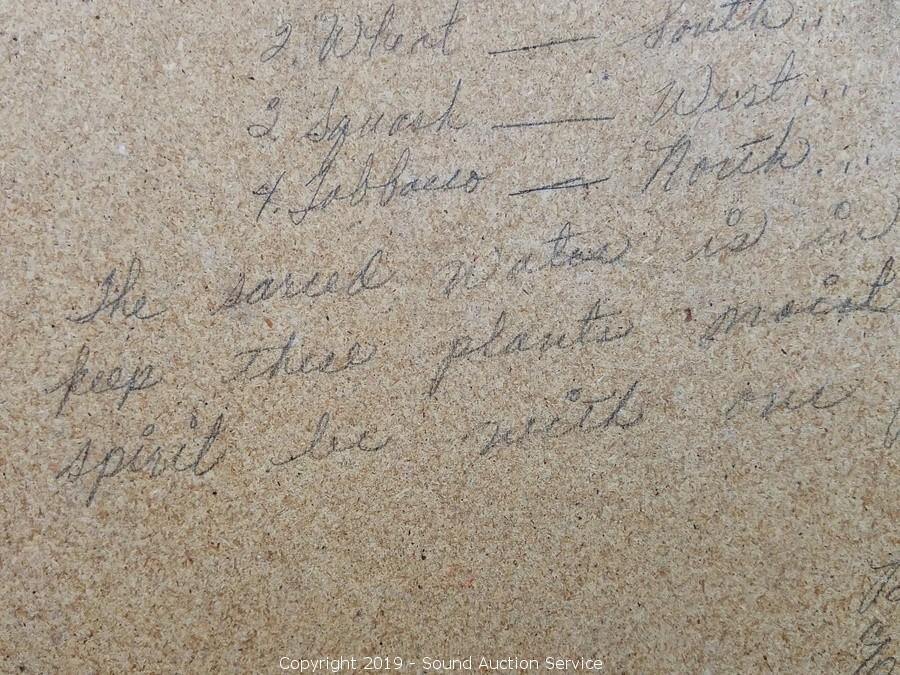 2. Wheat — South...
3 Squash — West...
4. Tobbacco — North...
The sarced water is in
keep these plants moist
spirit be with one
Copyright 2019 - Sound Auction Service